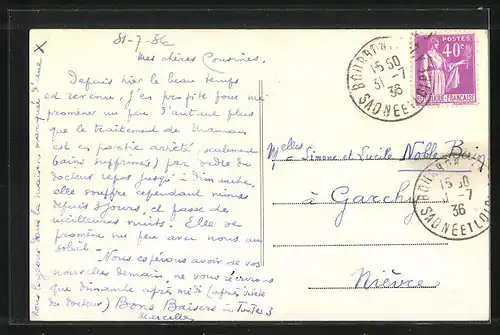 31-7-36
Mes chères Cousines.
Depuis hier le beau temps
est revenu, j'en profite pour me
promener un peu d'autant plus
que le traitement de maman
est en partie arrêté, seulement
bains supprimés) par ordre du
docteur repos jusqu'à dimanche,
elle souffre cependant moins
depuis jours, et passe de
meilleures nuits. Elle se
promène un peu avec nous au
soleil -
Nous espérons avoir de vos
nouvelles demain, ne vous écrirons
que dimanche après midi (après visite
du docteur) Bons Baisers à Toutes 3
Marcelle
Nous logeons dans la maison marquée d'une X
POSTES
40c
FRANÇAISE
15 50
31 -7
36
SAONE ET LOIRE
Melles Simone et Lucile Noble
à Garchy
Nièvre
15 50
31 -7
36
SAONE ET LOIRE